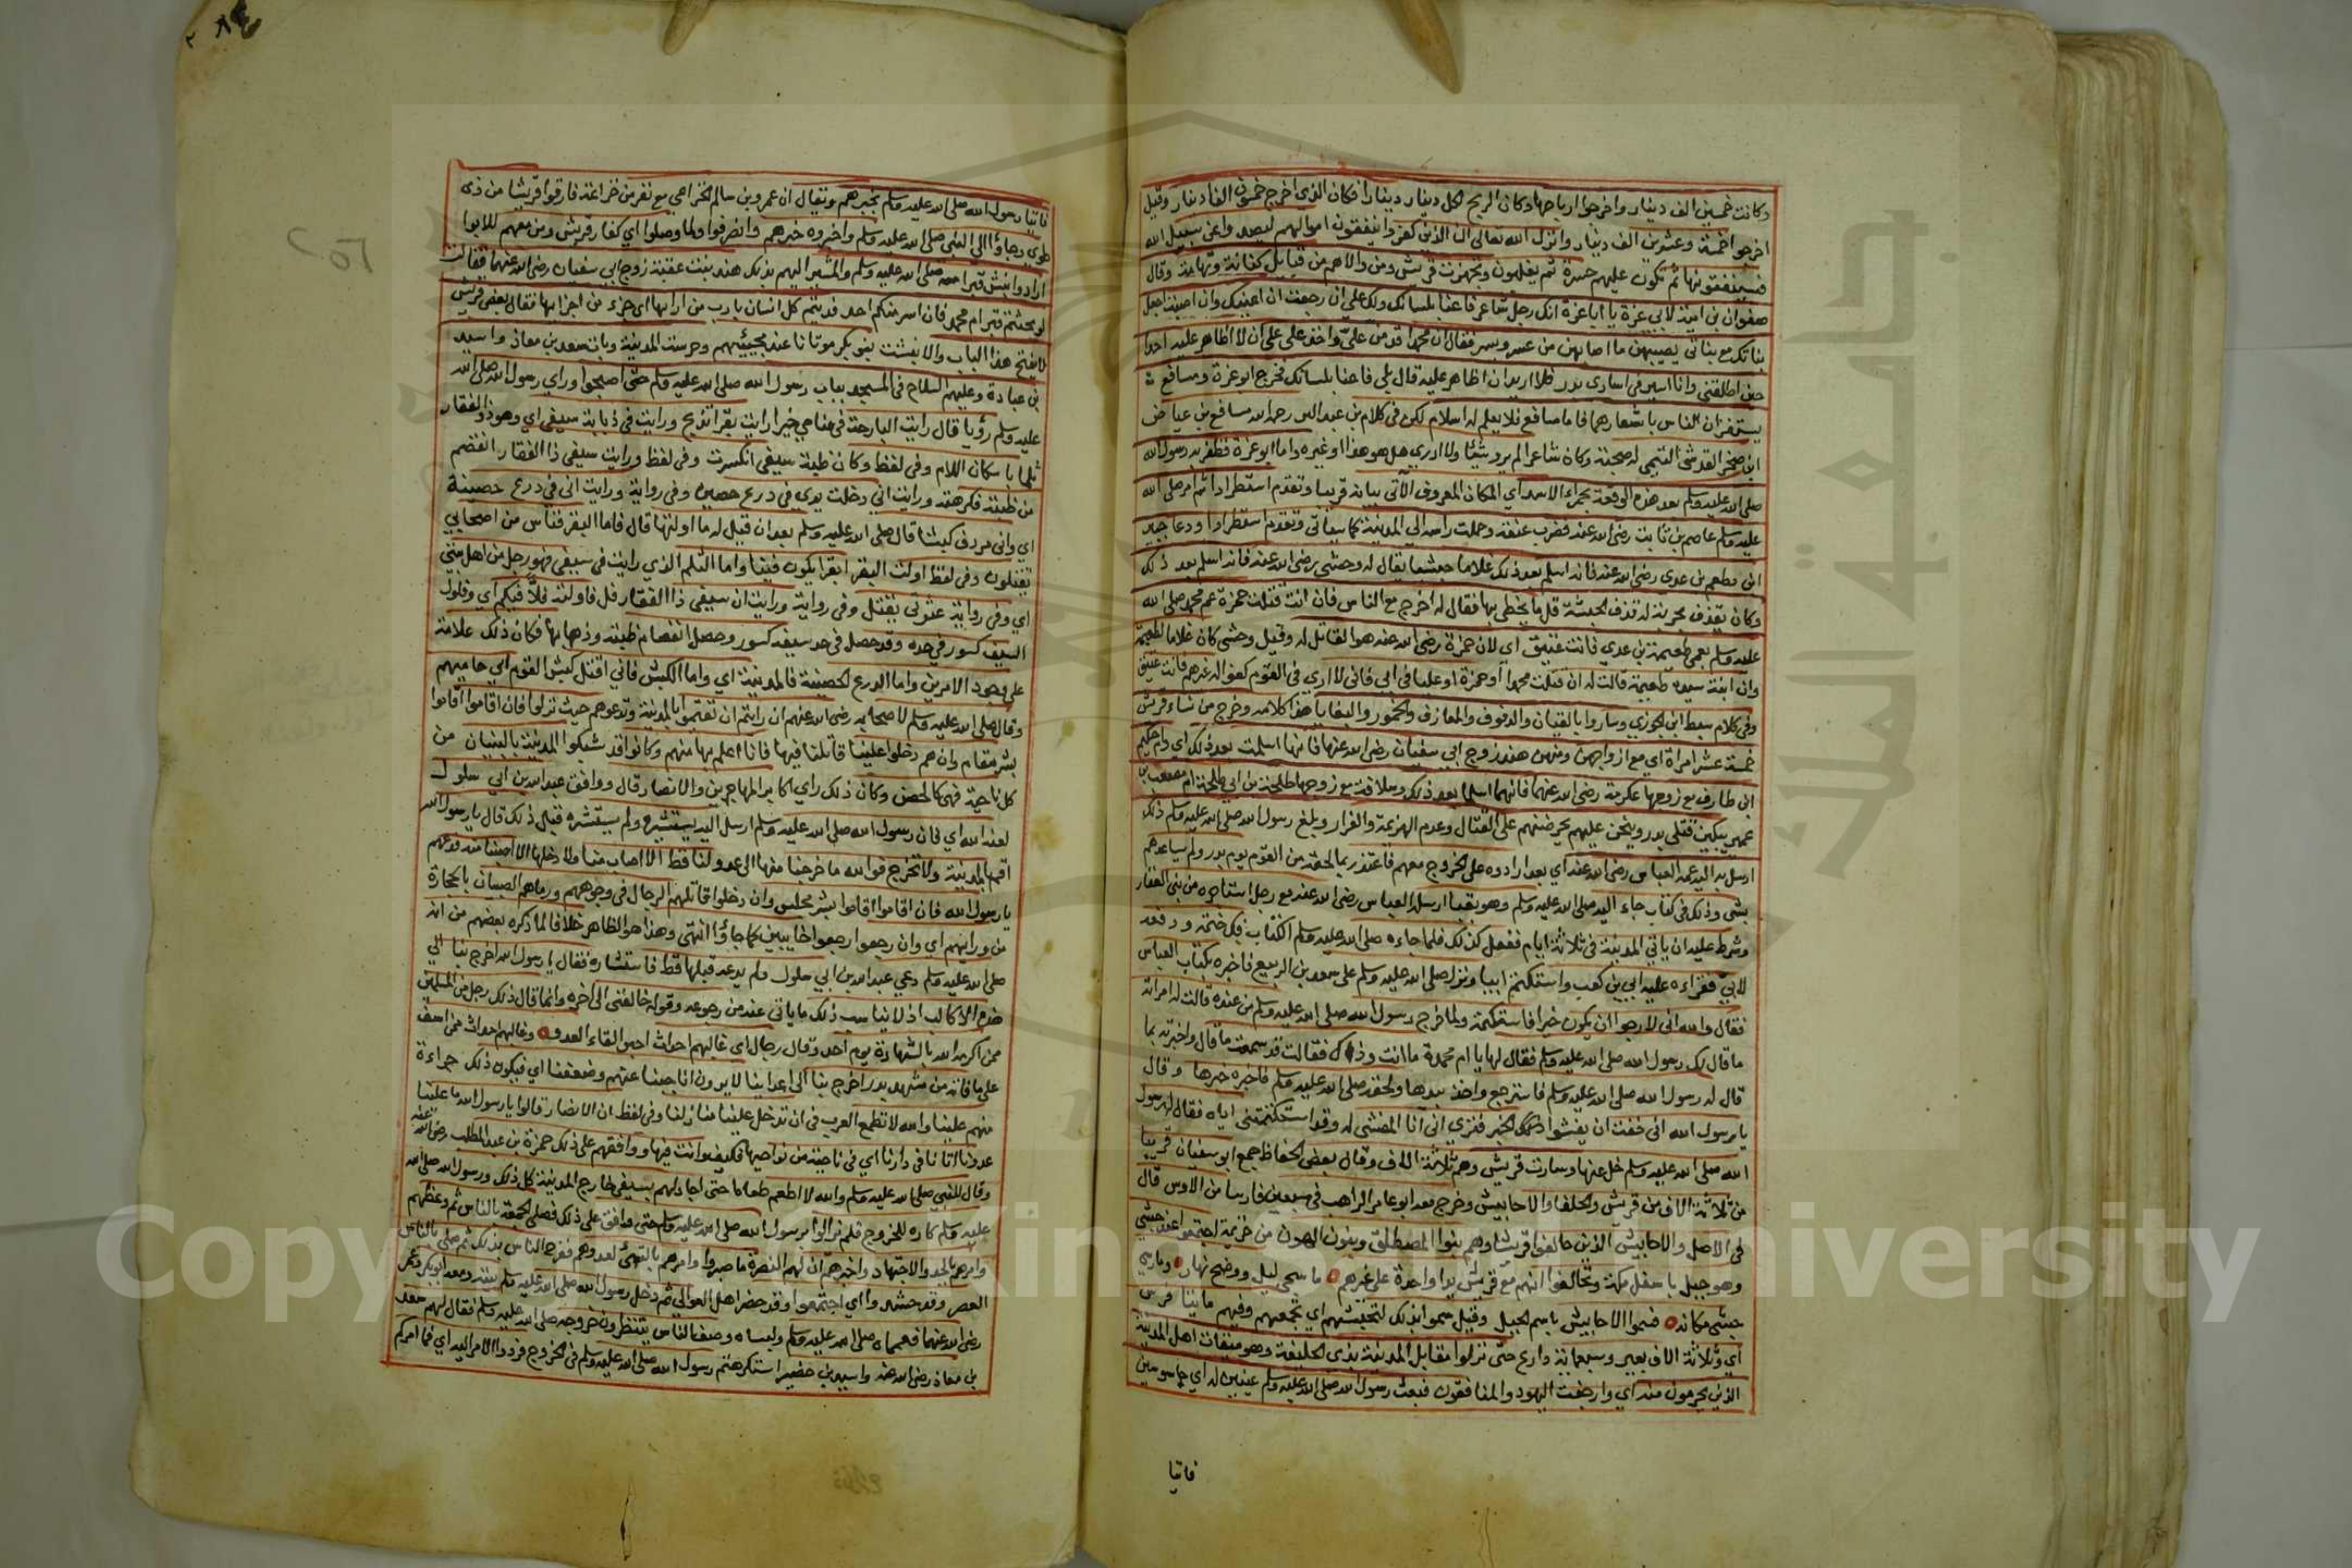 وكانت خمسين الف دينار واخرجوا ارباحها وكان الربح لكل دينار دينارا فكان الذي اخرج خمسون الفا دينار وقيل
اخرجوا خمسة وعشرين الف دينار وانزل الله تعالى ان الذين كفروا ينفقون اموالهم ليصدوا عن سبيل الله
فسينفقونها ثم تكون عليهم حسرة ثم يغلبون وتجهزت قريش ومن والاهم من قبائل كنانة وتهامة وقال
صفوان بن امية لابي عزة يا ابا عزة انك رجل شاعر فاعنا بلسانك ولك علي ان رجعت ان اعينك وان اصبت اجعل
بناتك مع بناتي يصيبهن ما اصابهن من عسر ويسر فقال ان محمدا قد من علي واخذ علي ان لا اظاهر عليه احدا
حين اطلقني وانا اسير في اسارى بدر فلا اريد ان اظاهر عليه قال بلى فاعنا بلسانك فخرج ابو عزة ومسافع
يستفزان الناس باشعارهما فاما مسافع فلا يعلم له اسلام لكن في كلام بن عبد البر رحمه الله مسافع بن عياض
ابن صخر القرشي التيمي له صحبة وكان شاعرا لم يرو شيئا ولا ادري هل هو هذا او غيره واما ابو عزة فظفر به رسول الله
صلى الله عليه وسلم بعد هذه الوقعة بحمراء الاسد اي المكان المعروف الآتي بيانه قريبا وتقدم استطرادا ثم امر صلى الله
عليه وسلم عاصم بن ثابت رضي الله عنه فضرب عنقه وحملت راسه الى المدينة كما سياتي وتقدم استطرادا ودعا جبير
ابن مطعم بن عدي رضي الله عنه فانه اسلم بعد ذلك غلاما حبشيا يقال له وحشي رضي الله عنه فانه اسلم بعد ذلك
وكان يقذف بحربة له قذف الحبشة قل ما يخطى بها فقال له اخرج مع الناس فان انت قتلت حمزة عم محمد صلى الله
عليه وسلم بعمي طعيمة بن عدي فانت عتيق اي لان حمزة رضي الله عنه هو القاتل له وقيل وحشي كان غلاما لطعيمة
وان ابنة سيده طعيمة قالت له ان قتلت محمدا او حمزة او عليا في ابي فاني لا ادري في القوم كفوا له غيرهم فانت عتيق
وفي كلام سبط ابن الجوزي وساروا بالقيان والدفوف والمعازف والخمور والبغايا هذا كلامه وخرج من نساء قريش
خمسة عشر امراة اي مع ازواجهن ومنهن هند زوج ابي سفيان رضي الله عنها فانها اسلمت بعد ذلك اي وام حكيم
ابن طارف مع زوجها عكرمة رضي الله عنهما فانهما اسلما بعد ذلك وسلافة مع زوجها طلحة بن ابي طلحة ام مصعب بن
عمير يبكين قتلى بدر وينحن عليهم يحرضنهم على القتال وعدم الهزيمة والفرار وبلغ رسول الله صلى الله عليه وسلم ذلك
ارسل به اليه عمه العباس رضي الله عنه اي بعد ارادوه على الخروج معهم فاعتذر بما لحقه من القوم يوم بدر ولم يساعدهم
بشي وذلك في كتاب جاء اليه صلى الله عليه وسلم وهو بقبا ارسله العباس رضي الله عنه مع رجل استاجره من بني الغفار
وشرط عليه ان ياتي المدينة في ثلاثة ايام ففعل كذلك فلما جاءه صلى الله عليه وسلم الكتاب فك ختمه ودفعه
لابي فقراءه عليه ابي بن كعب واستكتم ابيا ونزل صلى الله عليه وسلم على سعد بن الربيع فاخبره بكتاب العباس
فقال والله اني لارجوا ان يكون خيرا فاستكتمه ولما خرج رسول الله صلى الله عليه وسلم من عنده قالت له امراته
ما قال لك رسول الله صلى الله عليه وسلم فقال لها يا ام محمدة ما انت وذاك فقالت قد سمعت ما قال واخبرته بما
قال له رسول الله صلى الله عليه وسلم فاسترجع واخذ بيدها ولحقه صلى الله عليه وسلم فاخبره خبرها وقال
يا رسول الله اني خفت ان يفشوا الخبر فترى اني انا المفشي له وقد استكتمتني اياه فقال له رسول
الله صلى الله عليه وسلم خل عنها وسارت قريش وهم ثلاثة الاف وقال بعض الحفاظ جمع ابو سفيان قريبا
من ثلاثة الاف من قريش والحلفا والاحابيش وخرج معه ابو عامر الراهب في سبعين فارسا من الاوس قال
في الاصل والاحابيش الذين حالفوا قريشا وهم بنوا المصطلق وبنون الهون من خزيمة اجتمعوا عند حبشي
وهو جبل باسفل مكة وتحالفوا انهم مع قريش يدا واحدة على غيرهم ما سجى ليل ووضح نهار وما رسي
حبشي مكانه فسموا الاحابيش باسم الجبل وقيل سموا بذلك لتحبشهم اي تجمعهم وفيهم مايتا فرس
اي وثلاثة الاف بعير وسبعماية دارع حتى نزلوا مقابل المدينة بذي الحليفة وهو ميقات اهل المدينة
الذين يحرمون منه اي وارجفت اليهود والمنافقون فبعث رسول الله صلى الله عليه وسلم عينين له اي جاسوسين
فاتيا
فاتيا رسول الله صلى الله عليه وسلم بخبرهم ويقال ان عمرو بن سالم الخزاعي مع نفر من خزاعة فارقوا قريشا من ذي
طوى وجاؤا الى النبي صلى الله عليه وسلم واخبروه خبرهم وانصرفوا ولما وصلوا اي كفار قريش ومن معهم للابوا
ارادوا نبش قبر امه صلى الله عليه وسلم والمشير اليهم بذلك هند بنت عقبة زوج ابي سفيان رضي الله عنهما فقالت
لو بحثتم قبر ام محمد فان اسر منكم احد فديتم كل انسان بارب من ارابها اي جزء من اجزايها فقال بعض قريش
لا يفتح هذا الباب والا نبشت بنو بكر موتانا عند مجيئهم وحرست المدينة وبات سعد بن معاذ واسيد
بن عبادة وعليهم السلاح في المسجد بباب رسول الله صلى الله عليه وسلم حتى اصبحوا وراي رسول الله صلى الله
عليه وسلم رؤيا قال رايت البارحة في منامي خيرا رايت بقرا تذبح ورايت في ذبابة سيفي اي وهو ذو الفقار
ثلما باسكان اللام وفي لفظ وكان ظبة سيفي انكسرت وفي لفظ ورايت سيفي ذا الفقار انفصم
من ظبته فكرهته ورايت اني دخلت يدي في درع حصين وفي رواية ورايت اني في درع حصينة
اي واني مردف كبشا قال صلى الله عليه وسلم بعد ان قيل له ما اولتها قال فاما البقر فناس من اصحابي
يقتلون وفي لفظ اولت البقر بقرا يكون فينا واما الثلم الذي رايت في سيفي فهو رجل من اهل بيتي
اي وفي رواية عترتي يقتل وفي رواية ورايت ان سيفي ذا الفقار فل فاولته فلا فيكم اي وفلول
السيف كسور في حده وقد حصل في حد سيفه كسور وحصل انفصام ظبته وذهابها فكان ذلك علامة
على وجود الامرين واما الدرع الحصينة فالمدينة اي واما الكبش فاني اقتل كبش القوم اي حاميهم
وقال صلى الله عليه وسلم لاصحابه رضي الله عنهم ان رايتم ان تقيموا بالمدينة وتدعوهم حيث نزلوا فان اقاموا اقاموا
بشر مقام وان هم دخلوا علينا قاتلنا فيها فانا اعلم بها منهم وكانوا قد شبكوا المدينة بالبنيان من
كل ناحية فهي كالحصن وكان ذلك راي اكابر المهاجرين والانصار قال ووافق عبد الله بن ابي سلول
لعنه الله اي فان رسول الله صلى الله عليه وسلم ارسل اليه يستشيره ولم يستشره قبل ذلك قال يا رسول الله
اقم بالمدينة ولا تخرج فوالله ما خرجنا منها الى عدو لنا قط الا اصاب منا ولا دخلها الا اصبنا منه فدعهم
يا رسول الله فان اقاموا اقاموا بشر مجلس وان دخلوا قاتلهم الرجال في وجوههم ورماهم الصبيان بالحجارة
من ورايهم اي وان رجعوا رجعوا خايبين كما جاؤا انتهى وهذا هو الظاهر خلافا لما ذكره بعضهم من انه
صلى الله عليه وسلم دعي عبد الله بن ابي سلول ولم يدعه قبلها قط فاستشاره فقال يا رسول الله اخرج بنا الى
هذه الاكالب اذ لا يناسب ذلك ما ياتي عنه من رجوعه وقوله خالفني الى اخره وانما قال ذلك رجل من المسلمين
ممن اكرمه الله بالشهادة يوم احد وقال رجال اي غالبهم احداث احبوا لقاء العدو وغالبهم احداث ممن اسف
على ما فاته من مشهد بدر اخرج بنا الى اعداينا لا يرون انا جبنا عنهم وضعفنا اي فيكون ذلك جراءة
منهم علينا والله لا تطمع العرب في ان تدخل علينا منازلنا وفي لفظ ان الانصار قالوا يا رسول الله ما غلبنا
عدو لنا اتانا في دارنا اي في ناحية من نواحيها فكيف وانت فيها ووافقهم على ذلك حمزة بن عبد المطلب رضي الله عنه
وقال للنبي صلى الله عليه وسلم والله لا اطعم طعاما حتى اجادلهم بسيفي خارج المدينة كل ذلك ورسول الله صلى الله
عليه وسلم كاره للخروج فلم يزالوا برسول الله صلى الله عليه وسلم حتى وافق على ذلك فصلى الجمعة بالناس ثم وعظهم
وامرهم بالجد والاجتهاد واخبرهم ان لهم النصرة ما صبروا وامرهم بالتهيئ لعدوهم ففرح الناس بذلك ثم صلى بالناس
العصر وقد حشدوا اي اجتمعوا وقد حضر اهل العوالي ثم دخل رسول الله صلى الله عليه وسلم بيته ومعه ابو بكر وعمر
رضي الله عنهما فعمماه صلى الله عليه وسلم ولبساه وصف الناس ينتظرون خروجه صلى الله عليه وسلم فقال لهم سعد
بن معاذ رضي الله عنه واسيد بن حضير استكرهتم رسول الله صلى الله عليه وسلم في الخروج فردوا الامر اليه اي فما امركم
Copyright © King Saud University